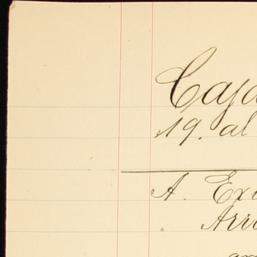 Caja
19. al
A. Exi
Arr